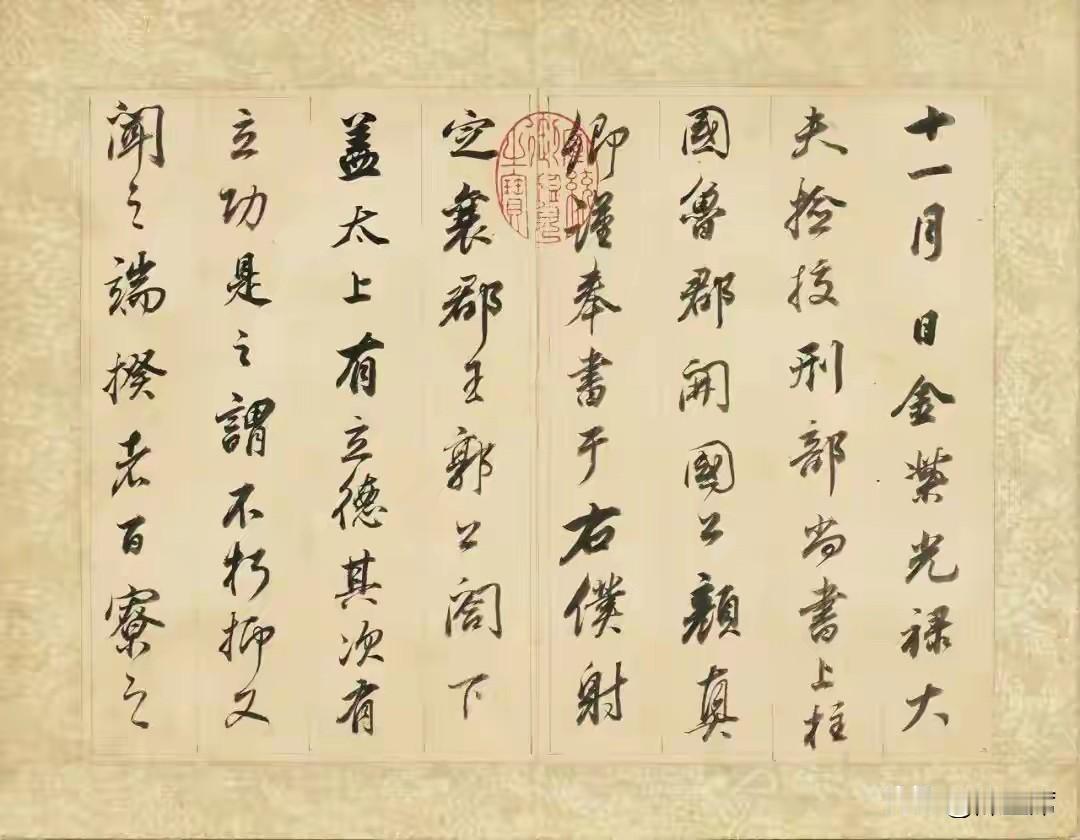 十一月日金紫光禄大
夫捡挍刑部尚書上柱
國魯郡開國公顏真
卿謹奉書于右僕射
定襄郡王郭公閤下
盖太上有立德其次有
立功是之謂不朽抑又
聞之端揆者百寮之